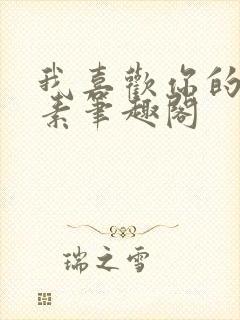 我喜歡你的
素筆趣閣
瑞之雪